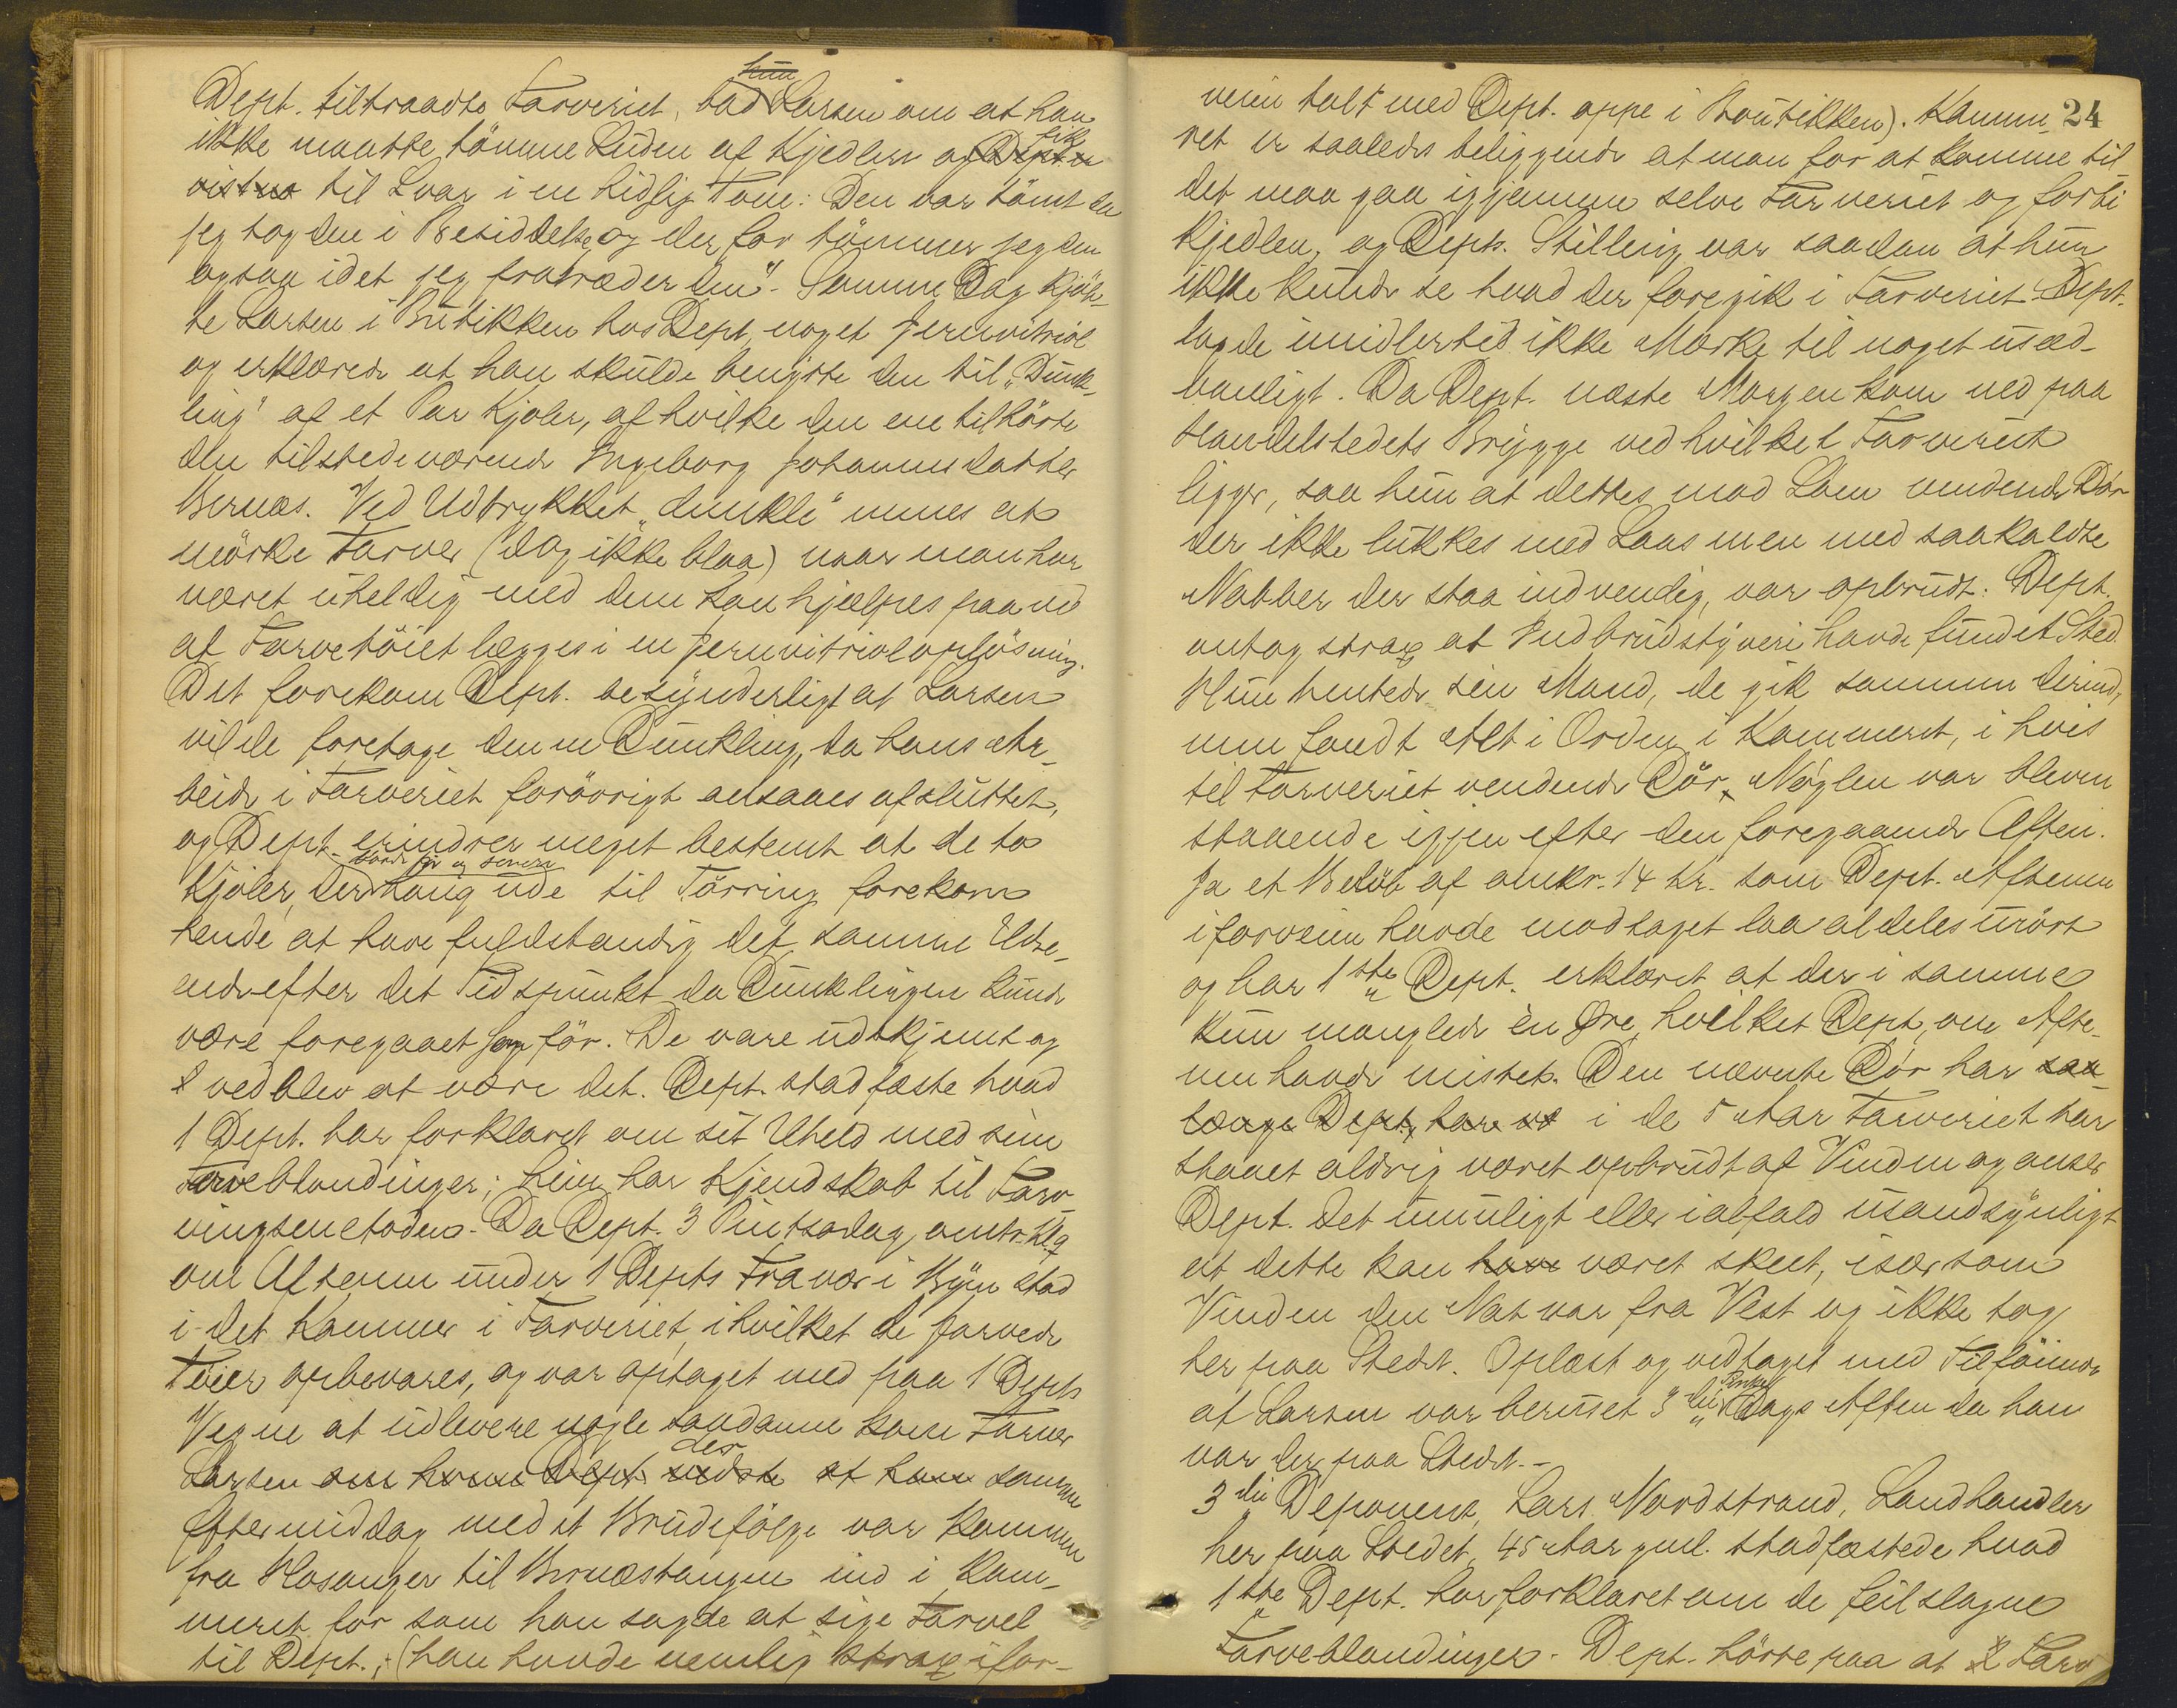 Dept. tiltraadte Farveriet, bad hun Larsen om at han
ikke maatte tömme Kuden af Kjedlen og fik Dept.
til Svar i en hidsig Tone: Den var tömt da
jeg tog den i Besiddelse og derfor tömmer jeg den
ogsaa idet jeg fratræder den". Samme Dag kjöb-
te Larsen i Butikken hos Dept. noget Jernvitriol
og erklærede at han skulde benytte den til "Dunk-
ling" af et Par Kjoler, af hvilke den ene tilhörte
den tilstedeværende Ingeborg Johannesdatter
Bernæs. Ved Udtrykket "dunkle" menes at
mörke Farver (dog ikke blaa) naar man har
været uheldig med dem kan hjælpes paa ved
at Farvetöiet lægges i en Jernvitriolopløsning.
Det forekom Dept. besynderligt at Larsen
vilde foretage denne Dunkling, da hans Ar-
beide i Farveriet forövrigt ansaaes afsluttet,
og Dept. erindrer meget bestemt at de to
Kjoler, der baade för og senere hang ude til Törring forekom
hende at have fuldstændig det samme Udse-
ende efter det Tidspunkt da Dunklingen kunde
være foregaaet som för. De vare udskjemt og
vedblev at være det. Dept. stadfæste hvad
1 Dept. har forklaret om sit Uheld med sine
Farveblandinger; hun har Kjendskab til Farv-
ningsmetoden. Da Dept. 3 Pintsedag, omtr. Kl. 9
om Aftenen under 1 Depts Fravær i Byen stod
i det Kammer i Farveriet, i hvilket de farvede
Töier opbevares, og var optaget med paa 1 Depts
Vegne at udlevere nogle saadanne kom Farver
Larsen om hvem Dept. vidste at han der samme
Eftermiddag med et Brudefölge var kommen
fra Hosanger til Bernæstangen ind i Kam-
meret for som han sagde at sige Farvel
til Dept.; (han havde nemlig strax ifor-
24
veien talt med Dept. oppe i Boutikken). Kamme-
ret er saaledes beliggende at man for at komme til
det maa gaa igjennem selve Farveriet og forbi
Kjedlen, og Depts. Stilling var saadan at hun
ikke kunde se hvad der foregik i Farveriet. Dept.
lagde imidlertid ikke Mærke til noget usæd-
vanligt. Da Dept. næste Morgen kom ned paa
Handelstedets Brygge ved hvilket Farveriet
ligger, saa hun at dettes mod Söen vendende Dör
der ikke lukkes med Laas men med saakaldte
Nabber der staa indvendig, var opbrudt. Dept.
antog strax at Indbrudstyveri havde fundet Sted.
Hun hentede sin Mand, de gik sammen derind,
men fandt Alt i Orden i Kammeret, i hvis
til Farveriet vendende Dör, Nöglen var bleven
staaende igjen efter den foregaaende Aften.
Ja et Belöb af omkr. 14 Kr. som Dept. Aftenen
iforveien havde modtaget laa aldeles urört
og har 1ste Dept. erklæret at der i samme
kun manglede èn Øre, hvilket Dept. om Afte-
nen havde mistet. Den nævnte Dör har saa-
længe Dept. har væ i de 5 Aar Farveriet har
staaet aldrig været opbrudt af Vinden og anser
Dept. det umuligt eller ialfald usandsynligt
at dette kan have været skeet, især som
Vinden den Nat var fra Vest og ikke tog
her paa Stedet. Oplæst og vedtaget med Tilföiende
at Larsen var beruset 3die Pintse Dags Aften da han
var der paa Stedet.-
3die Deponent, Lars Nordstrand, Landhandler
her paa Stedet, 45 Aar gml. stadfæstede hvad
1ste Dept. har forklaret om de feilslagne
Farveblandinger. Dept. hörte paa at Farv